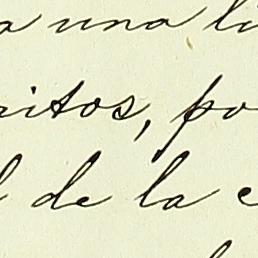 a una li
ritos, po
l de la c